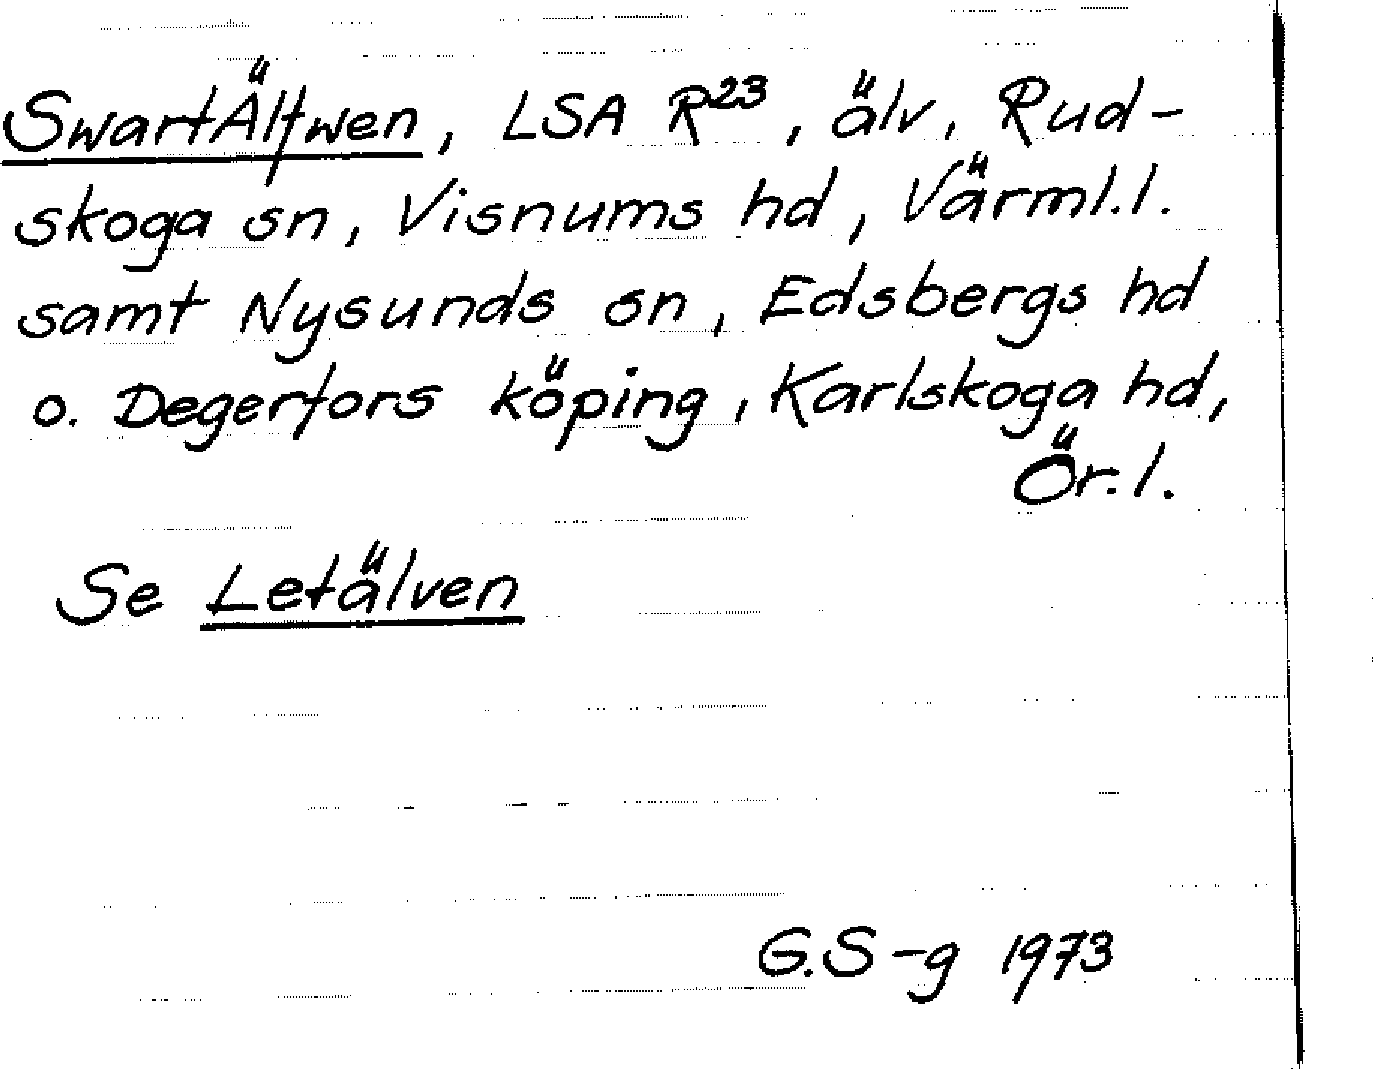 SwartÄlfwen, LSA R²³, älv, Rud-
skoga sn, Visnums hd, Värml.l.
samt Nysunds sn, Edsbergs hd
o. Degerfors köping, Karlskoga hd,
Ör.l.
Se Letälven
G.S-g 1973